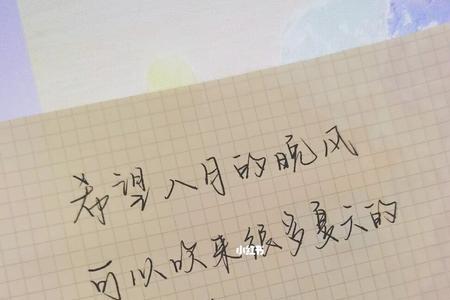 希望八月的晚风
可以吹来很多夏天的
小红书